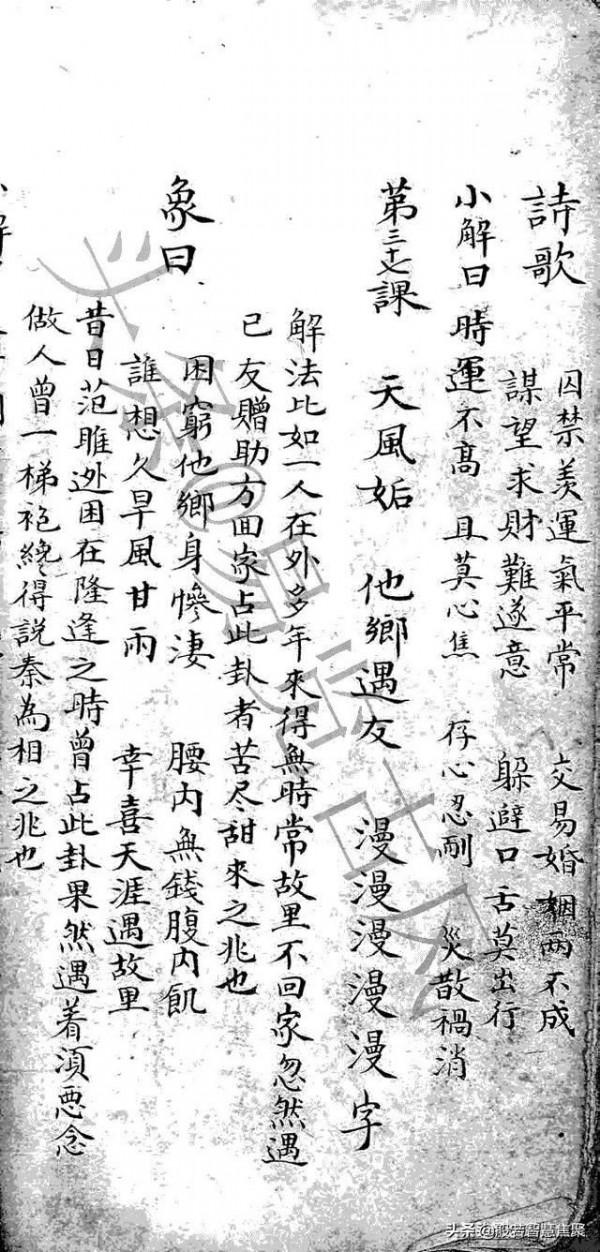 詩歌 囚禁羙運氣平常 交易婚姻兩不成
謀望求財難遂意 躲避口舌莫出行
小解曰 時運不高 且莫心焦 存心忍耐 災散禍消
第三十七課 天風姤 他鄉遇友 漫漫漫漫漫字
解法比如一人在外多年來得無時常故里不回家忽然遇
已友贈助方回家占此卦者苦尽甜來之兆也
象曰 困窮他鄉身慘淒 腰內無錢腹內飢
誰想久旱風甘雨 幸喜天涯遇故里
昔日范雎逊困在隆逢之時曾占此卦果然遇着湏悪念
做人曾一梯袍纔得説秦為相之兆也
小解
头条@般若智慧焦聚